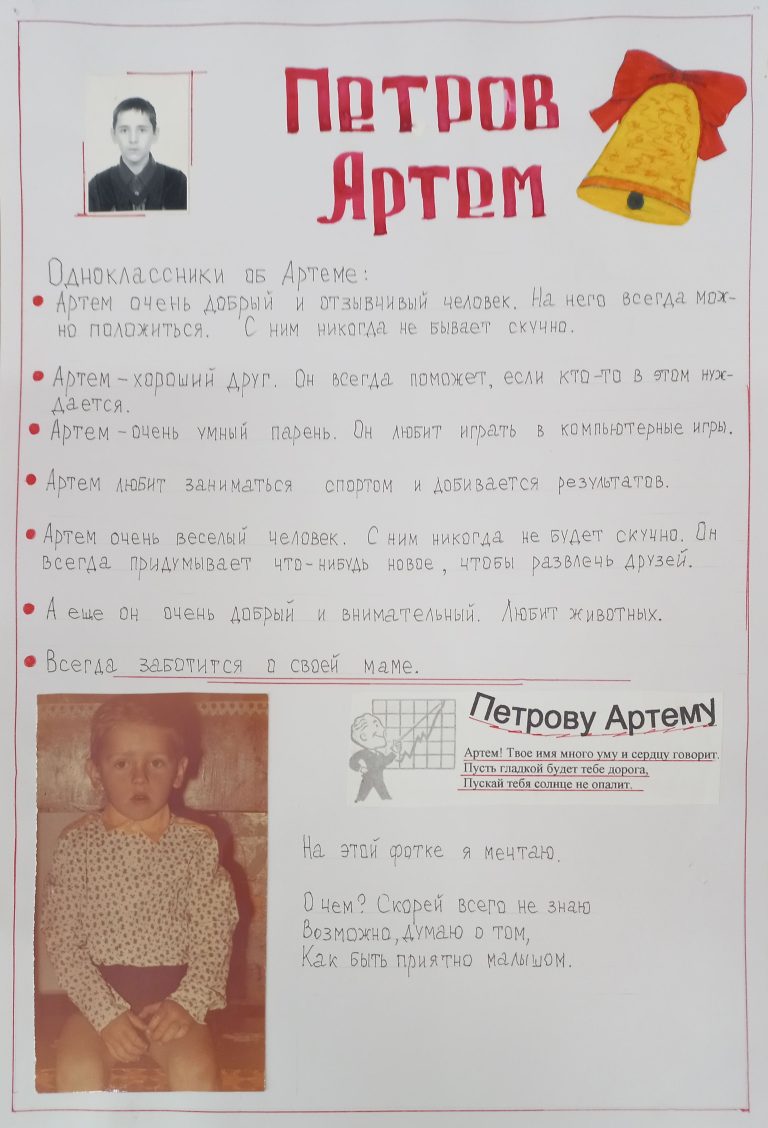 Петров
Артем
Одноклассники об Артеме:
Артем очень добрый и отзывчивый человек. На него всегда мож-
но положиться. С ним никогда не бывает скучно.
Артем – хороший друг. Он всегда поможет, если кто-то в этом нуж-
дается.
Артем – очень умный парень. Он любит играть в компьютерные игры.
Артем любит заниматься спортом и добивается результатов.
Артем очень веселый человек. С ним никогда не будет скучно. Он
всегда придумывает что-нибудь новое, чтобы развлечь друзей.
А еще он очень добрый и внимательный. Любит животных.
Всегда заботится о своей маме.
Петрову Артему
Артем! Твое имя много уму и сердцу говорит.
Пусть гладкой будет тебе дорога,
Пускай тебя солнце не опалит.
На этой фотке я мечтаю.
О чем? Скорей всего не знаю
Возможно, думаю о том,
Как быть приятно малышом.